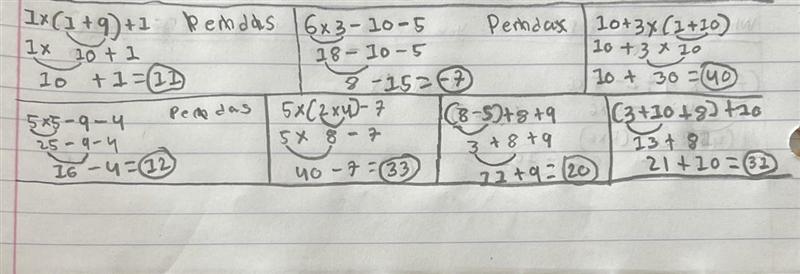 1x(1+9)+1 Pemdas
1x 10+1
10 +1=11
6x3-10-5 Pemdas
18-10-5
8-15=-7
10+3x(1+10)
10+3x10
10+ 30=40
5x5-9-4 Pemdas
25-9-4
16-4=12
5x(2x4)-7
5x 8-7
40-7=33
(8-5)+8+9
3+8+9
11+9=20
(3+10+8)+10
13+8
21+10=31